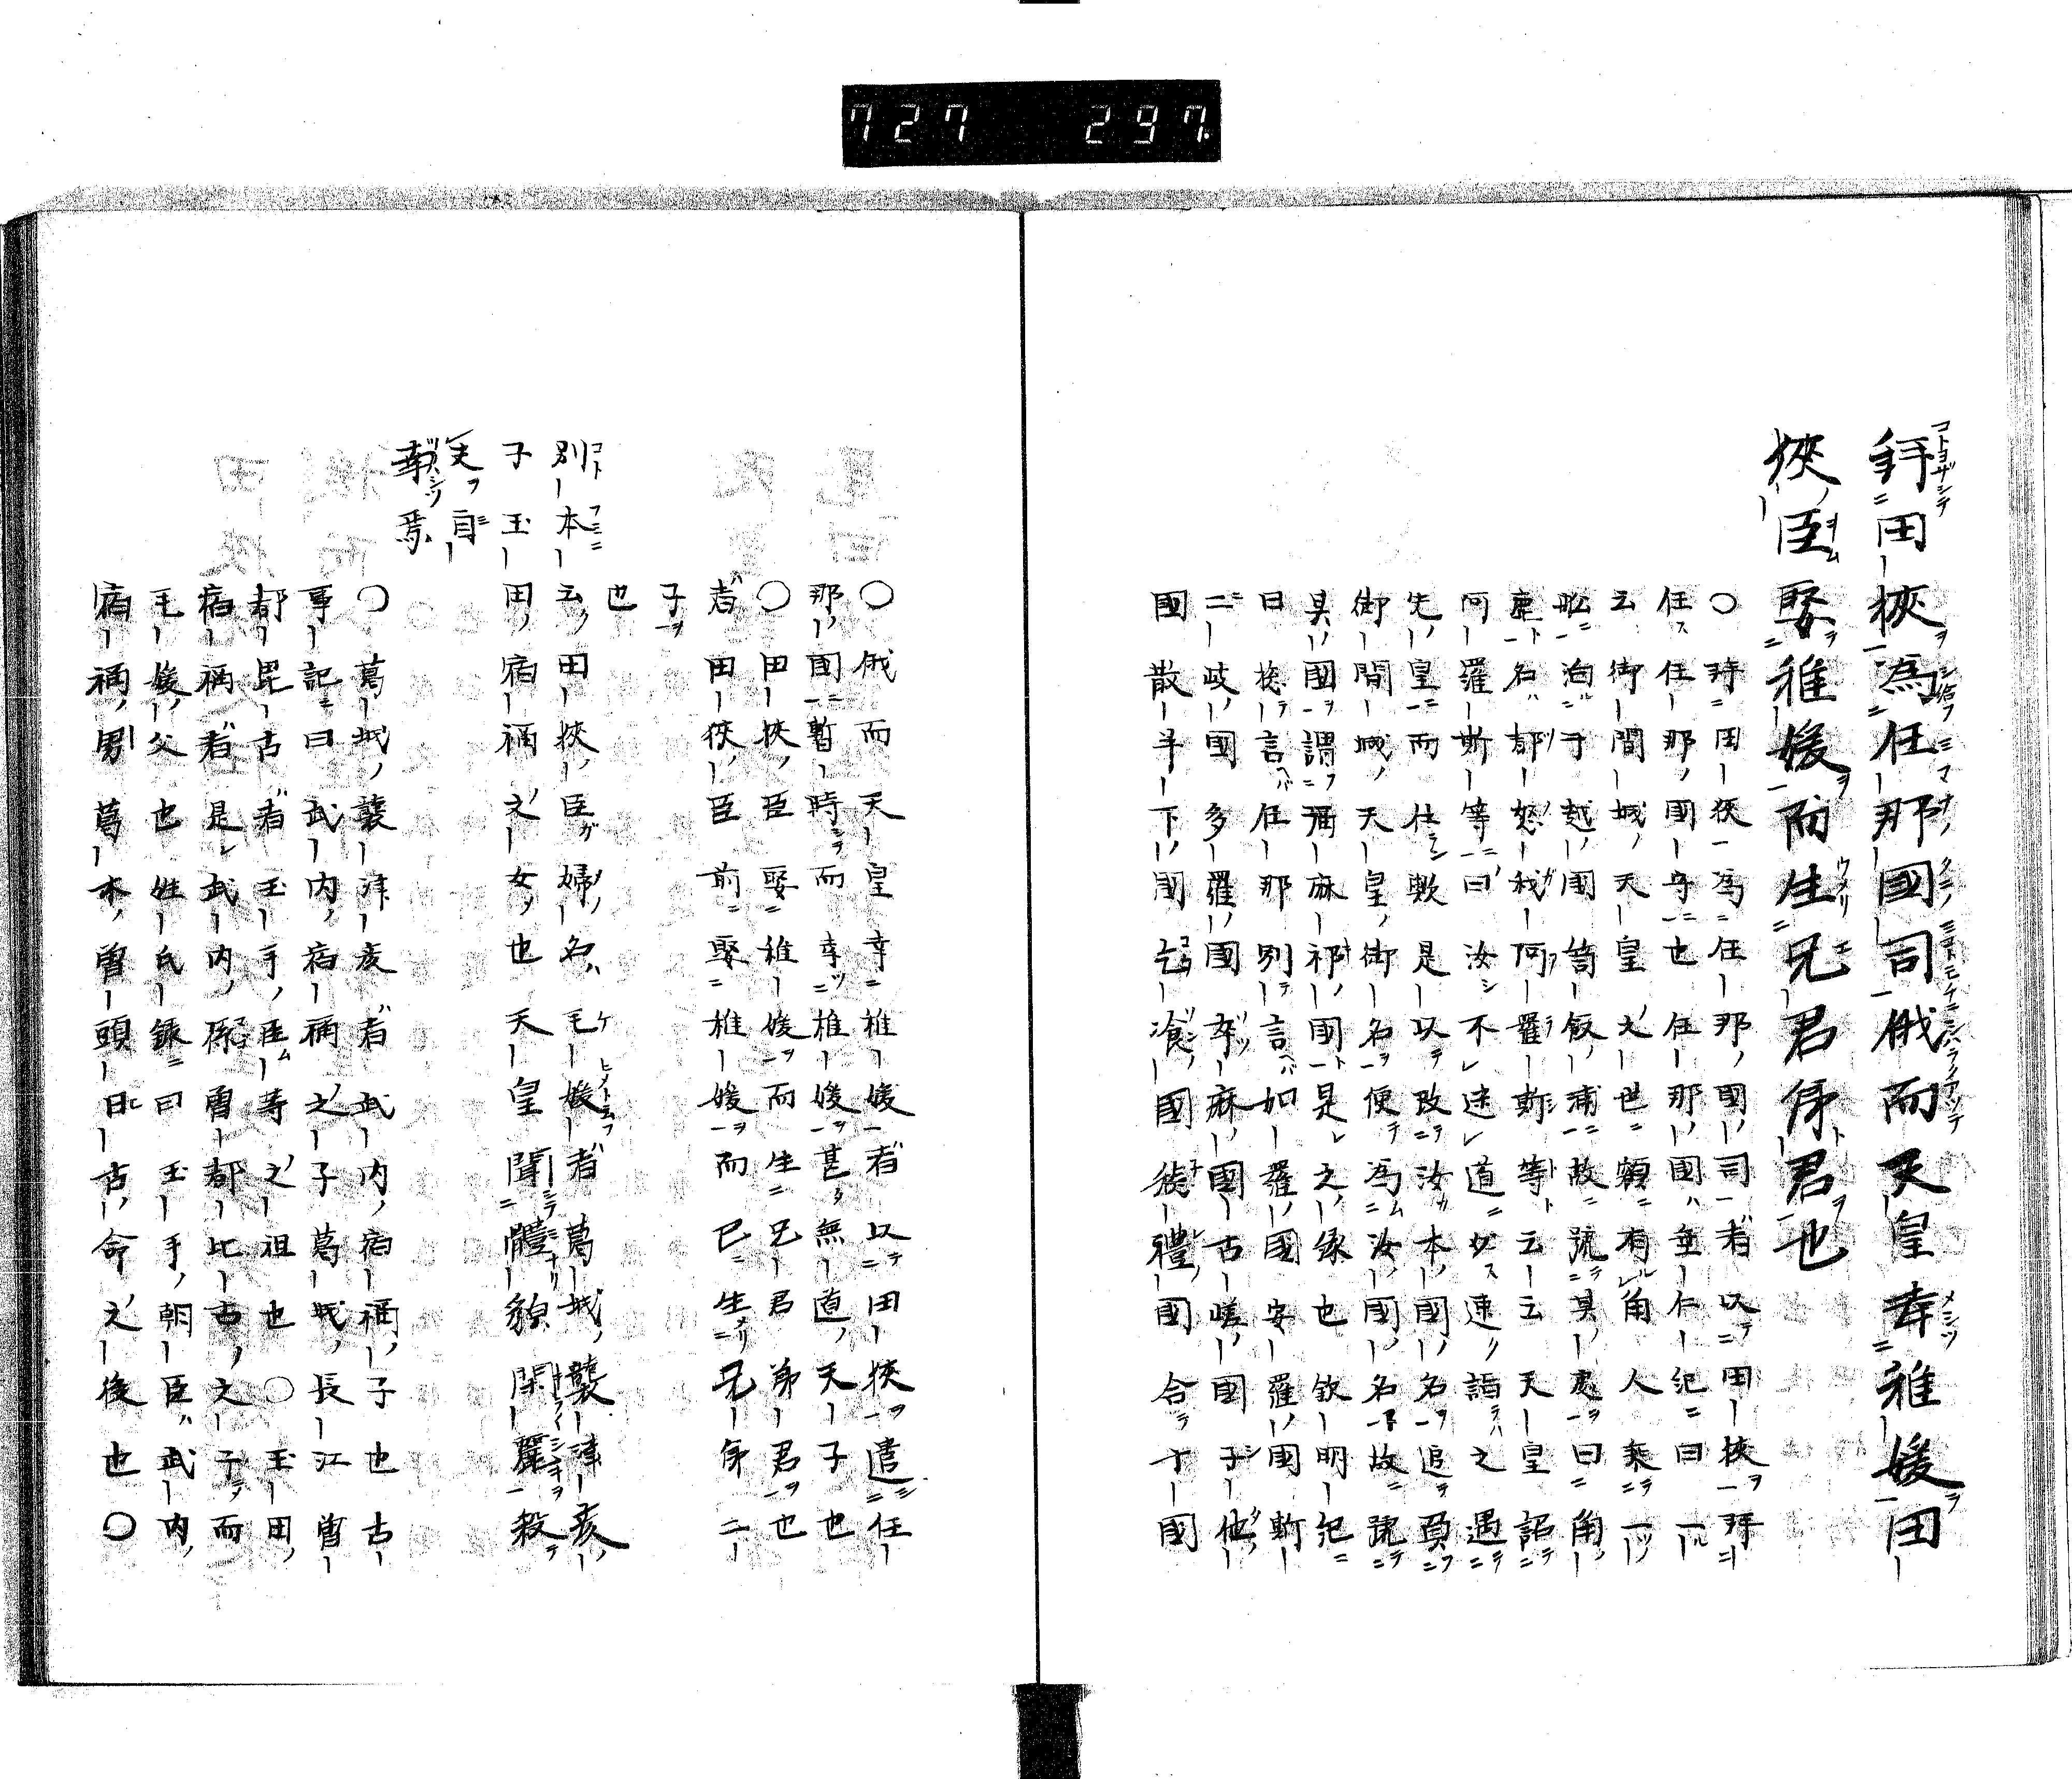 727 297
拜田狹為任那國司俄而天皇幸稚媛田
狹臣娶稚媛而生兄君弟君也
〇拜田狹為任那國司者以田狹拜
任任那國守也任那國垂仁紀曰一
云御間城天皇之世額有角人乘一
船泊于越國笥飯浦故號其處曰角
鹿名都怒我阿羅斯等云云天皇詔
阿羅斯等曰汝不迷道必速詣之遇
先皇而仕歟是以改汝本國名追負
御間城天皇御名便為汝國名故號
其國謂彌麻那國是之縁也欽明紀
曰總言任那別言加羅國安羅國斯
二岐國多羅國卒麻國古嵯國子他
國散半下國乞飡國稔禮國合十國
〇俄而天皇幸稚媛者以田狹遣任
那國暫時而幸稚媛甚無道天子也
〇田狹臣娶稚媛而生兄君弟君也
者田狹臣前娶稚媛而已生兄弟二
子
也
別本云田狹臣婦名毛媛者葛城襲津彦
子玉田宿禰之女也天皇聞體貌閑麗殺
夫自
幸焉
〇葛城襲津彦者武内宿禰子也古
事記曰武内宿禰之子葛城長江曾
都毘古者玉手臣等之祖也〇玉田
宿禰者是武内孫曾都比古之子而
毛媛父也姓氏録曰玉手朝臣武内
宿禰男葛木曾頭日古命之後也〇